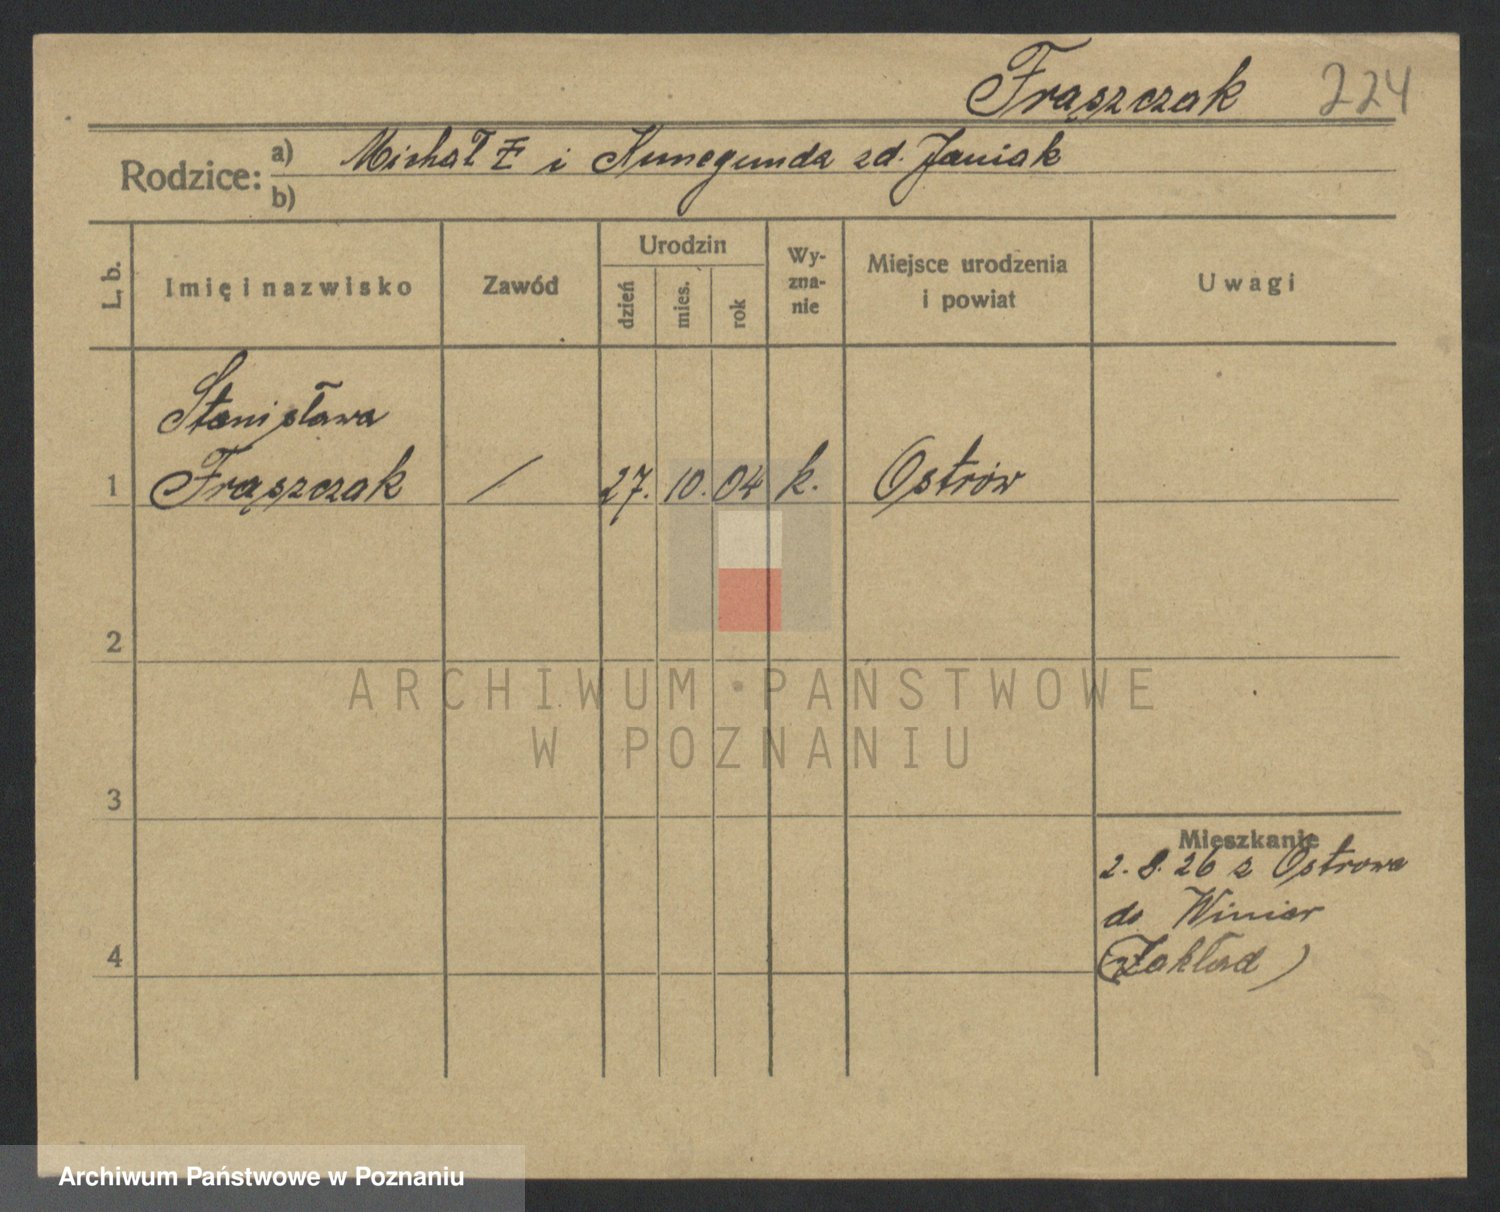 Frąszczak 224
Rodzice: a) Michał F i Kunegunda zd. Janiak
b)
L. b. Imię i nazwisko Zawód Urodzin dzień mies. rok Wy-zna-nie Miejsce urodzenia i powiat Uwagi
Stanisława
1 Frąszczak / 27. 10. 04 k. Ostrów
2
ARCHIWUM PAŃSTWOWE
W POZNANIU
3
Mieszkanie
2. 8. 26 z Ostrowa
do Winiar
4 (Zakład)
Archiwum Państwowe w Poznaniu